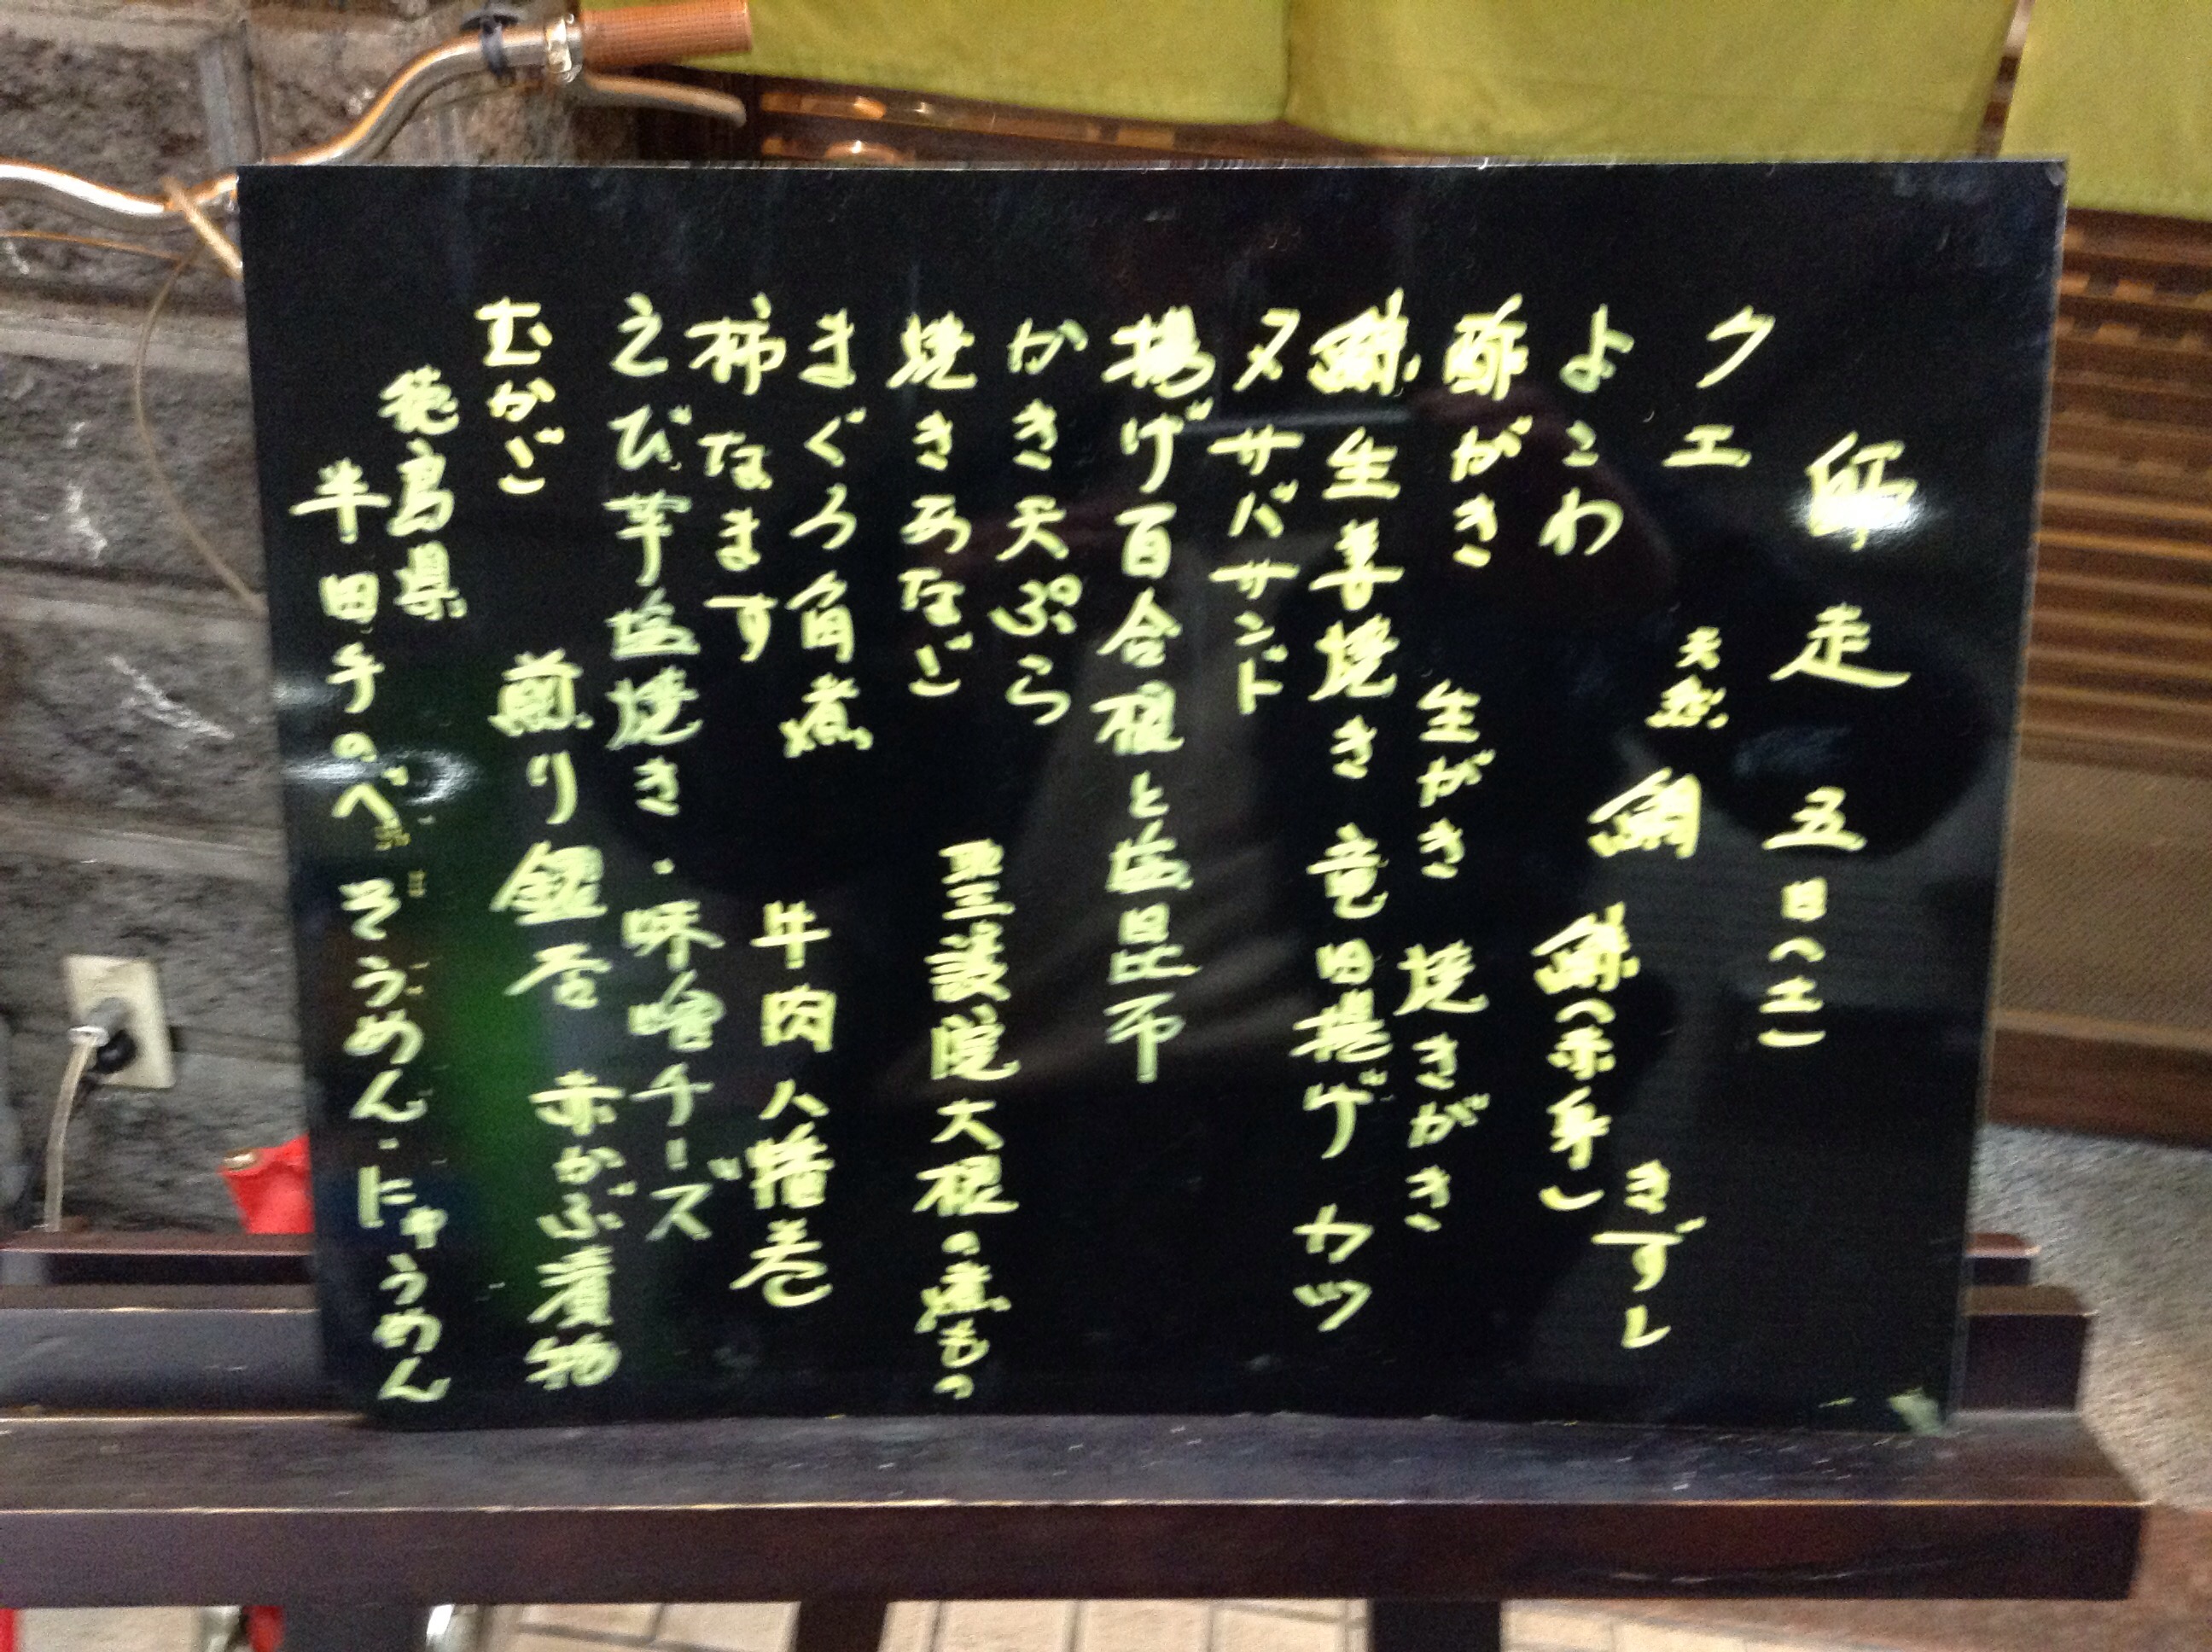 師走 五日(土)
クエ 天然 鯛 きずし
よこわ 鰤(氷見)
酢がき 生がき 焼きがき
鰤 生姜焼き 竜田揚げ カツ
〆サバサンド
揚げ百合根と塩昆布
かき天ぷら
焼きあなご 聖護院大根の煮もの
まぐろ角煮
柿なます 牛肉八幡巻
えび芋塩焼き・味噌チーズ
むかご 煎り銀杏 赤かぶ漬物
徳島県
半田手のべそうめん・にゅうめん